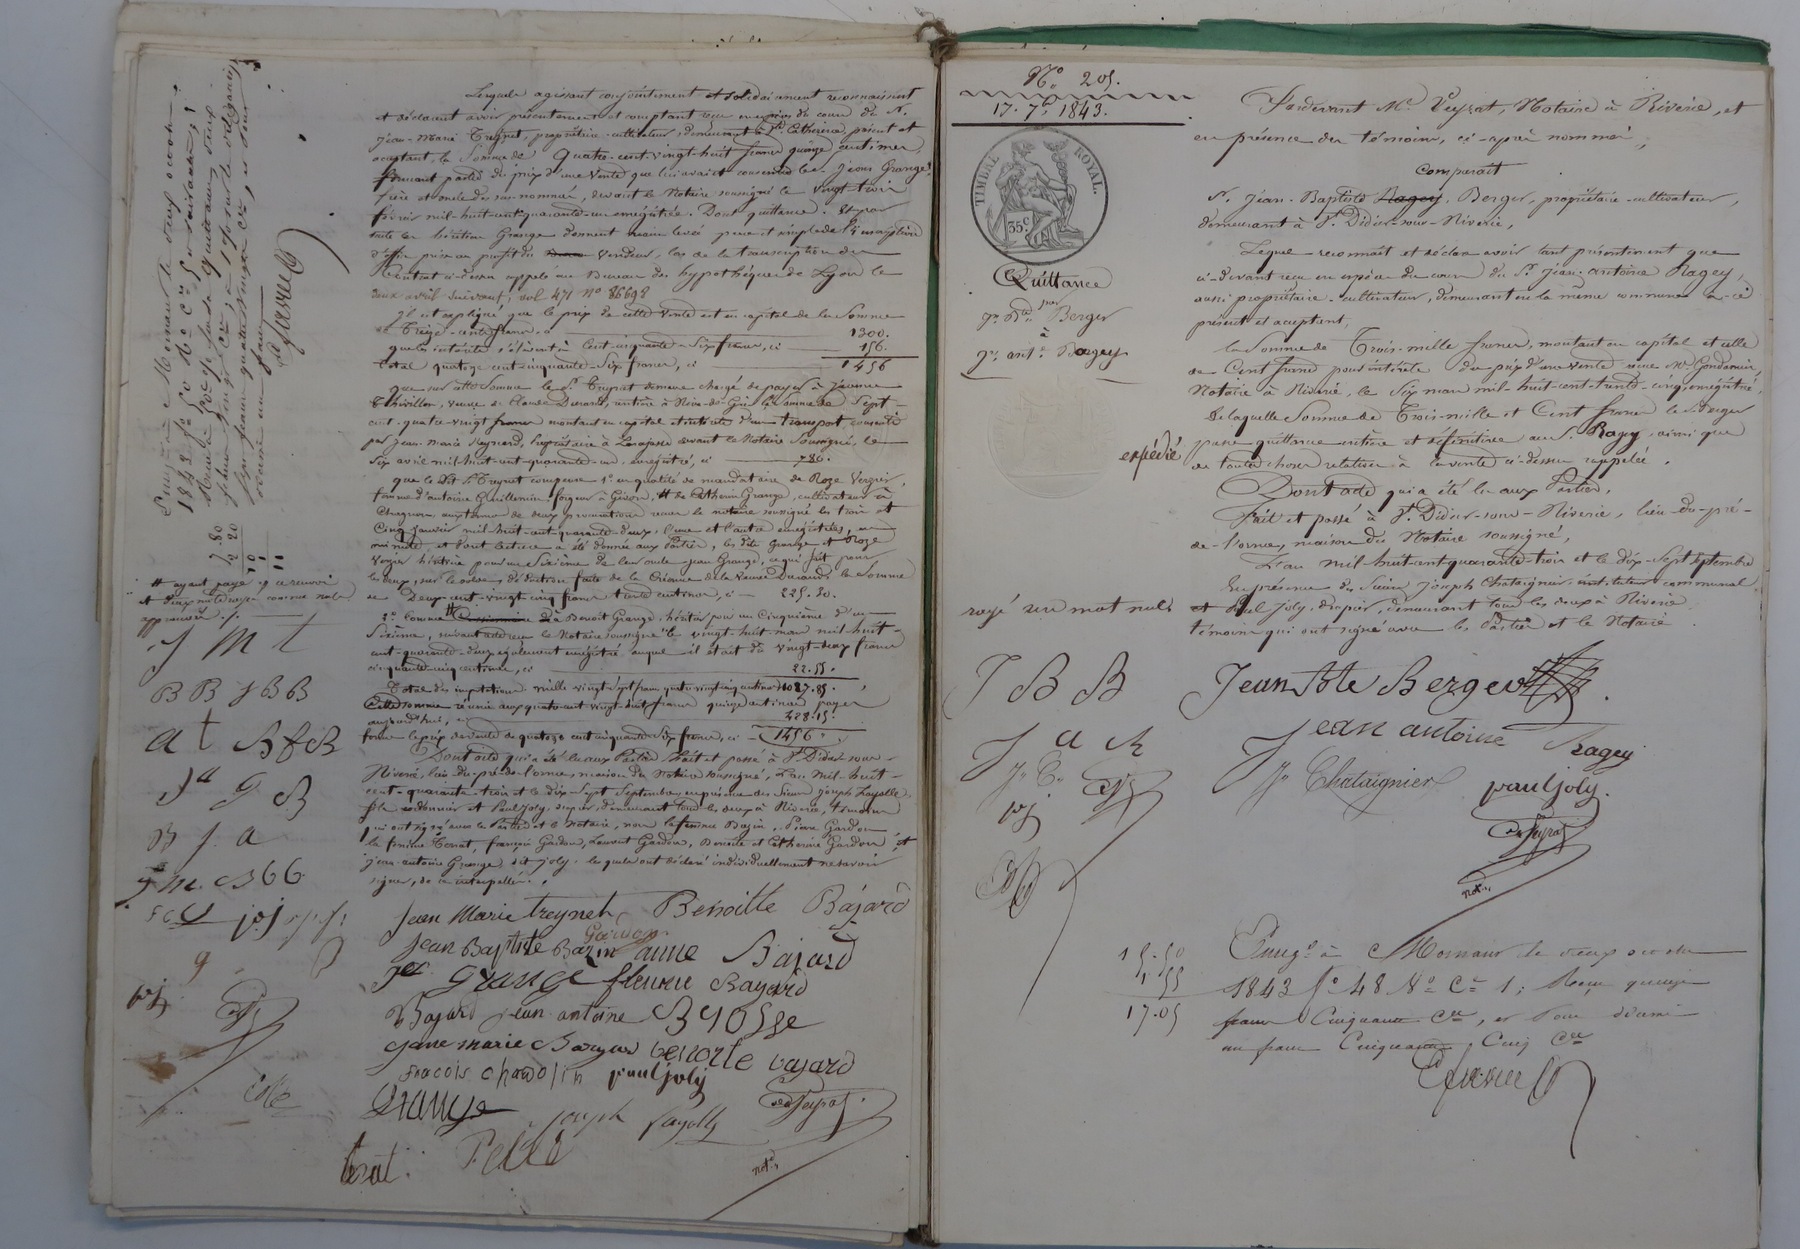 Lesquels agissant conjointement et solidairement reconnaissent
et déclarent avoir présentement et comptant reçu en espèces du cours du Sr.
Jean-Marie Treynet, propriétaire-cultivateur, demeurant à Ste Catherine, présent et
acceptant, la Somme de Quatre-cent-vingt-huit francs quinze centimes,
faisant partie du prix d'une vente que lui avaient consentie les Grange
père et devant le Notaire soussigné le vingt-trois
février mil-huit-cent-quarante-un enregistrée. Dont quittance. Et par
suite les héritiers Grange donnent main levée pure et simple de l'inscription
d'office prise au profit du vendeur, lors de la transcription du
Contrat ci-dessus rappelé au Bureau des hypothèques de Lyon le
deux avril suivant, vol 471 No 86698
Il est expliqué que le prix de cette vente est en capital de la Somme
de Treize-cents francs, ci 1300.
que les intérêts s'élèvent à Cent-cinquante-Six francs, ci 156.
Total quatorze cent-cinquante-Six francs, ci 1456
que sur cette Somme le Sr. Treynet demeure chargé de payer à Jeanne
Thivillon, veuve de Claude Durand, rentière à Rive-de-Gier la Somme de Sept-
cent-quatre-vingt francs montant en capital et intérêts d'un transport, consenti
par Jean-Marie Raynard, propriétaire à devant le Notaire Soussigné, le
Six avril mil-huit-cent-quarante-un, enregistré, ci 780.
que le dit Sr. Treynet compense 1o. en qualité de mandataire de Roze Verzier,
femme d'antoine Guillermin, forgeur à Givors, et de Catherine Grange, cultivateur à
Chagnon aux termes de deux procurations reçues le notaire soussigné les trois et
Cinq Janvier mil-huit-cent-quarante-deux, l'une et l'autre enregistrées, en
minute, et dont lecture a été donnée aux Parties, les dits Grange et Roze
Verzier héritiers pour un Sixième de Jean Grange, ce qui fait pour
les deux, sur le solde, déduction faite de la Créance de la veuve Durand, la Somme
de Deux-cent-vingt-cinq francs trente centimes, ci 225.30.
2o. Comme à Benoit Grange, héritier pour un Cinquième d'un
Sixième, suivant acte reçu le Notaire soussigné le vingt-huit mars mil-huit-
cent-quarante-deux également enregistré auquel il était dû vingt-deux francs
cinquante-cinq centimes, ci 22.55.
Total des imputations mille vingt-sept francs quatre vingt cinq centimes 1027.85.
Cette somme réunie aux quatre cent vingt-huit francs quinze centimes payés
aujourd'hui, ci 428.15.
forme le prix de vente de quatorze cent cinquante Six francs, ci 1456
Dont acte qui a été lu aux Parties. Fait et passé à St. Didier-sous-
Riverie, lieu-du-pré-de-l'orme, maison du Notaire soussigné, L'an mil-huit-
cent-quarante-trois et le dix-Sept Septembre, en présence des Sieurs Joseph Fayolle
fils cordonnier et Paul Joly, drapier, demeurant tous les deux à Riverie, témoins
qui ont signé avec les Parties et le Notaire, non la femme Bazin, Pierre Gardon
la femme Terrat, françois Gardon, Laurent Gardon, Benoite et Catherine Gardon et
Jean-antoine Grange dit Joly, lesquels ont déclaré individuellement ne savoir
signer, de ce interpellés.
Jean Marie treynet Benoitte Bajard
Gardon
Jean Baptiste Bazin anne Bajard
Grange fleurie Bayard
Bajard jean antoine B
jane marie Bajard benoite bajard
fracois chardolin paul joly
Grange joseph fayolle Veyrat
terrat notre.
Enregistré à Mornant le deux octobre
1843
Favrel
7.80
2 20
et ayant payé
et deux mots rayés comme nuls
approuvés
J M t
B B J B B
a t B f B
Jn G B
B J. a
J m. B G G
pj
No. 205.
17. 7bre 1843.
TIMBRE ROYAL.
35c.
Quittance
par
Jn. Bte. Berger
à
Jn. ant. Ragey
expédié
Pardevant Me. Veyrat, Notaire à Riverie, et
en présence des témoins, ci-après nommés,
Comparait
Sr. Jean-Baptiste Ragey, Berger, propriétaire-cultivateur,
demeurant à St. Didier-sous-Riverie,
Lequel reconnait et déclare avoir tant présentement que
ci-devant reçu en espèces du cours du Sr. Jean-antoine Ragey,
aussi propriétaire-cultivateur, demeurant en la même commune à ce
présent et acceptant,
la Somme de Trois-mille francs, montant en capital et celle
de Cent francs pour intérêts du prix d'une vente reçue Me. Condamin,
Notaire à Riverie, le Six mars mil-huit-cent-trente-cinq, enregistré.
De laquelle Somme de Trois-mille et Cent francs le Sr. Berger
passe quittance entière et définitive au Sr. Ragey, ainsi que
de toutes choses relatives à la vente ci-dessus rappelée.
Dont acte qui a été lu aux Parties.
Fait et passé à St. Didier-sous-Riverie, lieu-du-pré-
de-l'orme, maison du Notaire soussigné,
L'an mil-huit-cent-quarante-trois et le dix-Sept septembre
En présence des Sieurs Joseph Chataignier, instituteur communal,
et Paul Joly, drapier, demeurant tous les deux à Riverie,
témoins qui ont signé avec les Parties et le Notaire.
rayé un mot nul.
J B B
Jean Bte Berger
J a R
Jean antoine Ragey
Jh. C.
Jh Chataignier paul joly.
pj
Veyrat
notre.
15.50
1.55
17.05
Enregé à Mornant le deux octobre
1843 fo 48 Ro Ce 1; Reçu quinze
francs Cinquante Ces, et pour décime
un franc Cinquante Cinq Ces
Favrel